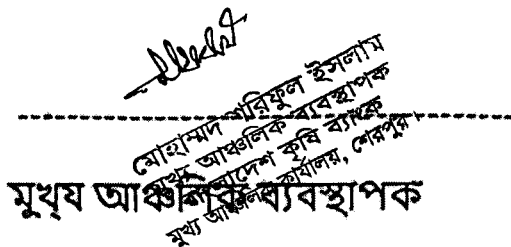 মোহাম্মদ শরিফুল ইসলাম
মুখ্য আঞ্চলিক ব্যবস্থাপক
বাংলাদেশ কৃষি ব্যাংক
মুখ্য আঞ্চলিক কার্যালয়, শেরপুর।
মুখ্য আঞ্চলিক ব্যবস্থাপক